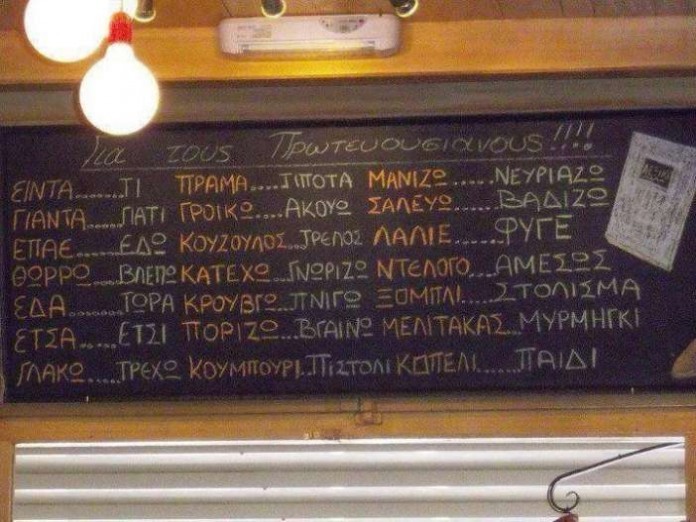 Για τους Πρωτευουσιανους!!!!
ΕΙΝΤΑ.......ΤΙ ΠΡΑΜΑ....ΤΙΠΟΤΑ ΜΑΝΙΖΩ......ΝΕΥΡΙΑΖΩ
ΓΙΑΝΤΑ.....ΓΙΑΤΙ ΓΡΟΙΚΩ...ΑΚΟΥΩ ΣΑΛΕΥΩ......ΒΑΔΙΖΩ
ΕΠΑΕ......ΕΔΩ ΚΟΥΖΟΥΛΟΣ..ΤΡΕΛΟΣ ΛΑΛΙΕ......ΦΥΓΕ
ΘΩΡΡΩ...ΒΛΕΠΩ ΚΑΤΕΧΩ..ΓΝΩΡΙΖΩ ΝΤΕΛΟΓΟ...ΑΜΕΣΩΣ
ΕΔΑ.......ΤΩΡΑ ΚΡΟΥΒΓΩ..ΠΝΙΓΩ ΞΟΜΠΛΙ....ΣΤΟΛΙΣΜΑ
ΕΤΣΑ......ΕΤΣΙ ΠΟΡΙΖΩ...ΒΓΑΙΝΩ ΜΕΛΙΤΑΚΑΣ..ΜΥΡΜΗΓΚΙ
ΓΛΑΚΩ.....ΤΡΕΧΩ ΚΟΥΜΠΟΥΡΙ..ΠΙΣΤΟΛΙ ΚΟΠΕΛΙ......ΠΑΙΔΙ